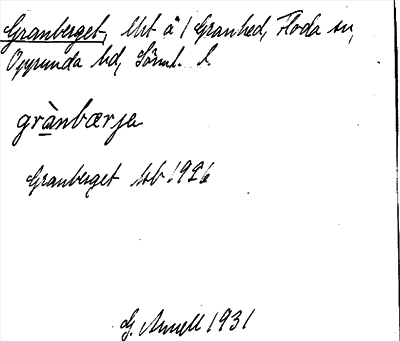 Granberget, lht å 1 Granhed, Floda sn,
Oppunda hd, Sörml. l.
grànbærja
Granberget Jsb 1926
G. Annell 1931